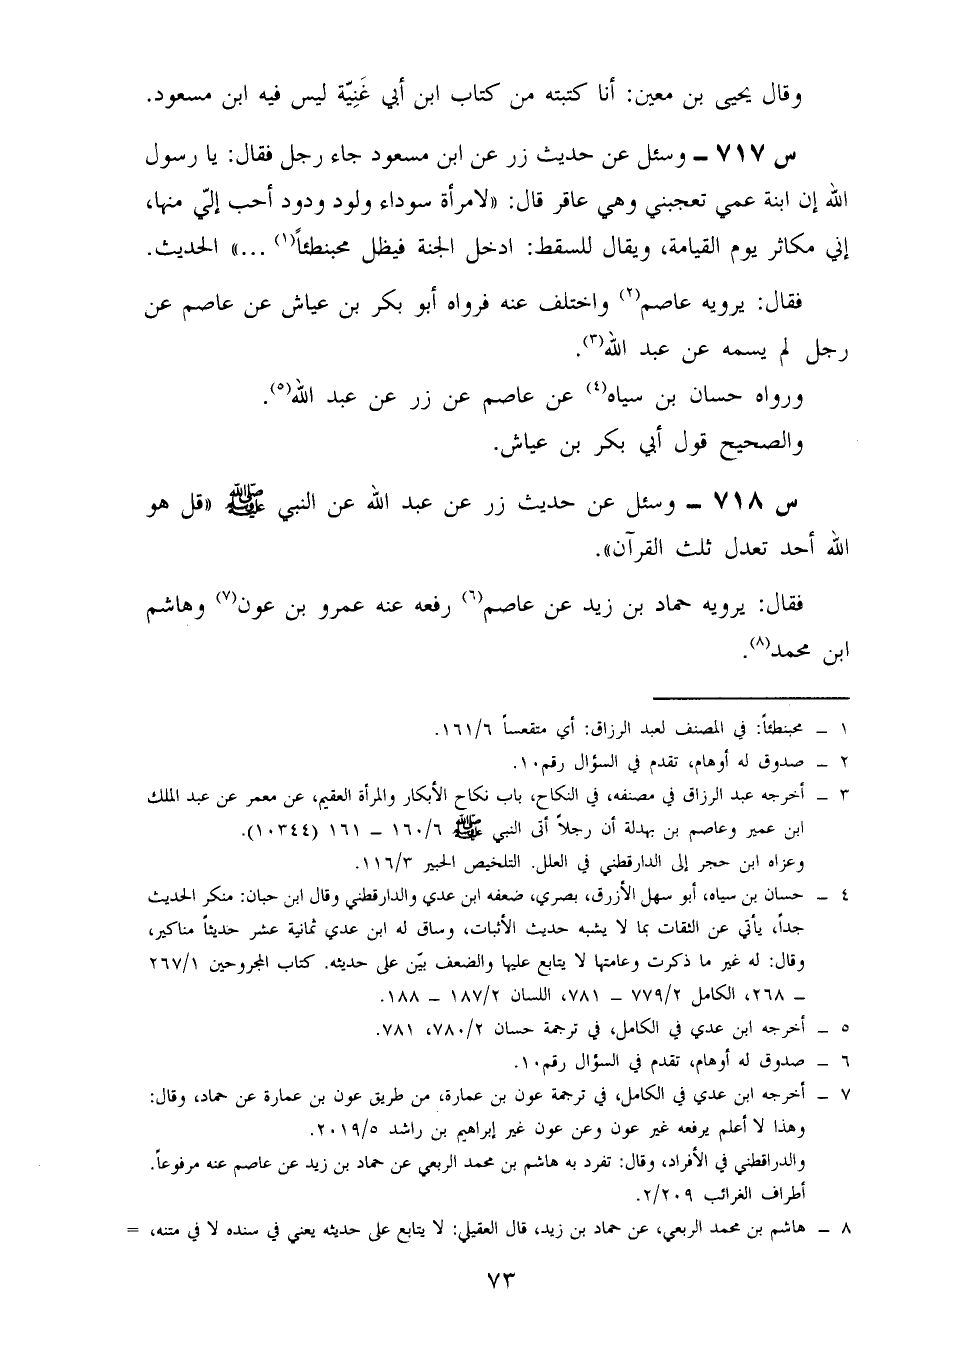 وقال يحيى بن معين: أنا كتبته من كتاب ابن أبي غَنِيّة ليس فيه ابن مسعود.
س ٧١٧ ــ وسئل عن حديث زر عن ابن مسعود جاء رجل فقال: يا رسول
الله إن ابنة عمي تعجبني وهي عاقر قال: «لامرأة سوداء ولود ودود أحب إليّ منها،
إني مكاثر يوم القيامة، ويقال للسقط: ادخل الجنة فيظل محبنطئاً(١) ...» الحديث.
فقال: يرويه عاصم(٢) واختلف عنه فرواه أبو بكر بن عياش عن عاصم عن
رجل لم يسمه عن عبد الله(٣).
ورواه حسان بن سياه(٤) عن عاصم عن زر عن عبد الله(٥).
والصحيح قول أبي بكر بن عياش.
س ٧١٨ ــ وسئل عن حديث زر عن عبد الله عن النبي ﷺ «قل هو
الله أحد تعدل ثلث القرآن».
فقال: يرويه حماد بن زيد عن عاصم(٦) رفعه عنه عمرو بن عون(٧) وهاشم
ابن محمد(٨).
١ ــ محبنطئاً: في المصنف لعبد الرزاق: أي متقعساً ١٦١/٦.
٢ ــ صدوق له أوهام، تقدم في السؤال رقم١٠.
٣ ــ أخرجه عبد الرزاق في مصنفه، في النكاح، باب نكاح الأبكار والمرأة العقيم، عن معمر عن عبد الملك
ابن عمير وعاصم بن بهدلة أن رجلاً أتى النبي ﷺ ١٦٠/٦ ــ ١٦١ (١٠٣٤٤).
وعزاه ابن حجر إلى الدارقطني في العلل. التلخيص الحبير ١١٦/٣.
٤ ــ حسان بن سياه، أبو سهل الأزرق، بصري، ضعفه ابن عدي والدارقطني وقال ابن حبان: منكر الحديث
جداً، يأتي عن الثقات بما لا يشبه حديث الأثبات، وساق له ابن عدي ثمانية عشر حديثاً مناكير،
وقال: له غير ما ذكرت وعامتها لا يتابع عليها والضعف بيّن على حديثه. كتاب المجروحين ٢٦٧/١
ــ ٢٦٨، الكامل ٧٧٩/٢ ــ ٧٨١، اللسان ١٨٧/٢ ــ ١٨٨.
٥ ــ أخرجه ابن عدي في الكامل، في ترجمة حسان ٧٨٠/٢، ٧٨١.
٦ ــ صدوق له أوهام، تقدم في السؤال رقم١٠.
٧ ــ أخرجه ابن عدي في الكامل، في ترجمة عون بن عمارة، من طريق عون بن عمارة عن حماد، وقال:
وهذا لا أعلم يرفعه غير عون وعن عون غير إبراهيم بن راشد ٢٠١٩/٥.
والدراقطني في الأفراد، وقال: تفرد به هاشم بن محمد الربعي عن حماد بن زيد عن عاصم عنه مرفوعاً.
أطراف الغرائب ٢/٢٠٩.
٨ ــ هاشم بن محمد الربعي، عن حماد بن زيد، قال العقيلي: لا يتابع على حديثه يعني في سنده لا في متنه، =
٧٣